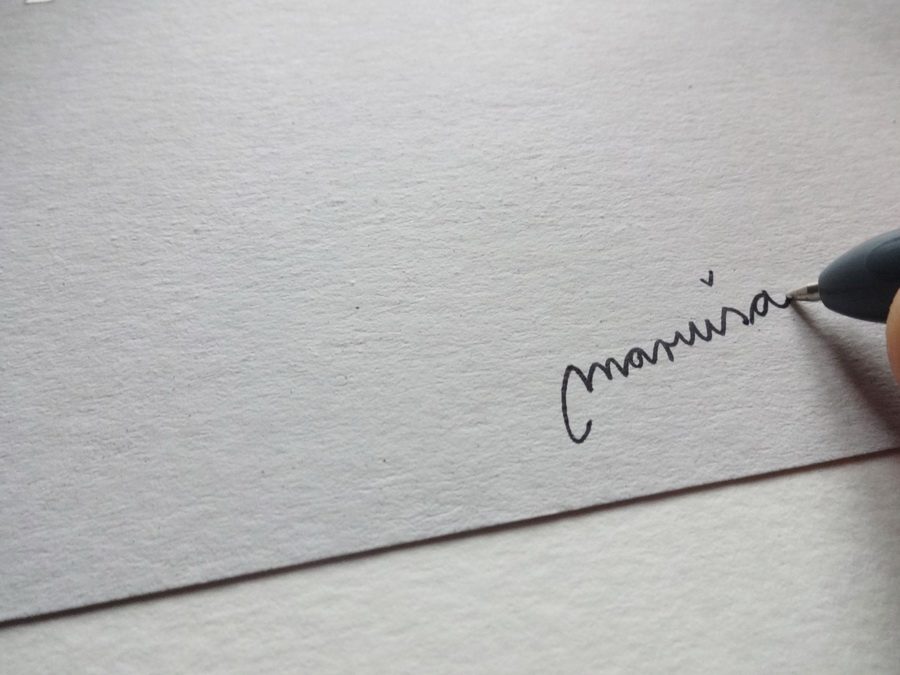 Maruša